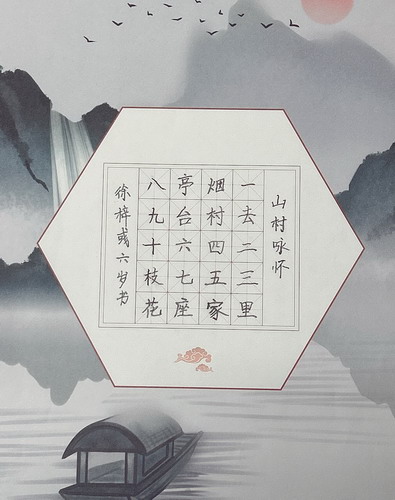 山村咏怀
一去二三里
烟村四五家
亭台六七座
八九十枝花
徐梓彧六岁书